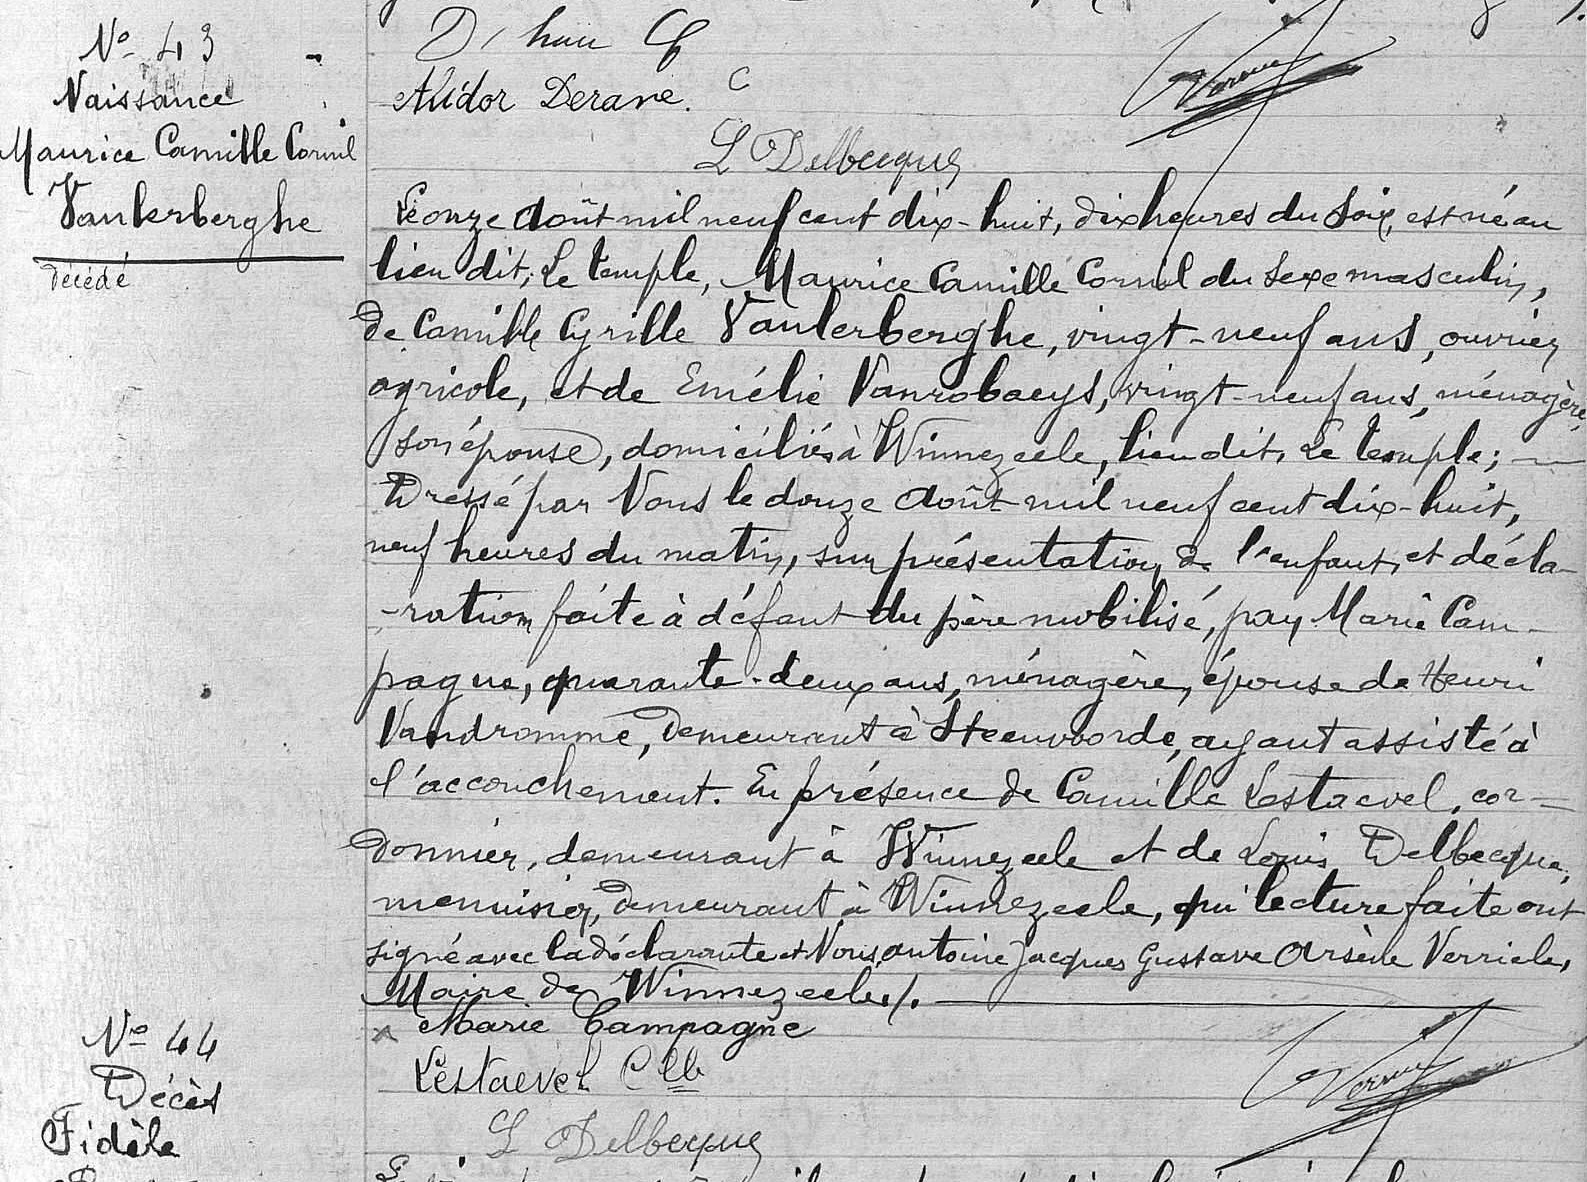 N° 43
Naissance
Maurice Camille Cornil
Vanlerberghe
Décédé
Alidor Derave.
L Delbecque
Le onze Août mil neuf cent dix-huit, dix heures du soir, est né au
lieu dit, Le temple, Maurice Camille Cornil du sexe masculin,
de Camille Cyrille Vanlerberghe, vingt-neuf ans, ouvrier
agricole, et de Emélie Vanrobaeys, vingt-neuf ans, ménagère,
son épouse, domiciliés à Winnezeele, lieu dit, Le temple; —
Dressé par Nous le douze Août mil neuf cent dix-huit,
neuf heures du matin, sur présentation de l'enfant, et décla-
-ration faite à défaut du père mobilisé, par Marie Cam-
pagne, quarante-deux ans, ménagère, épouse de Henri
Vandromme, demeurant à Steenvoorde, ayant assisté à
l'accouchement. En présence de Camille Lestaevel, cor-
donnier, demeurant à Winnezeele et de Louis Delbecque,
menuisier, demeurant à Winnezeele, qui lecture faite ont
signé avec la déclarante et Nous, Antoine Jacques Gustave Arsène Verriele,
Maire de Winnezeele./.
Marie Campagne
Lestaevel Clle
L Delbecque
N° 44
Décès
Fidèle